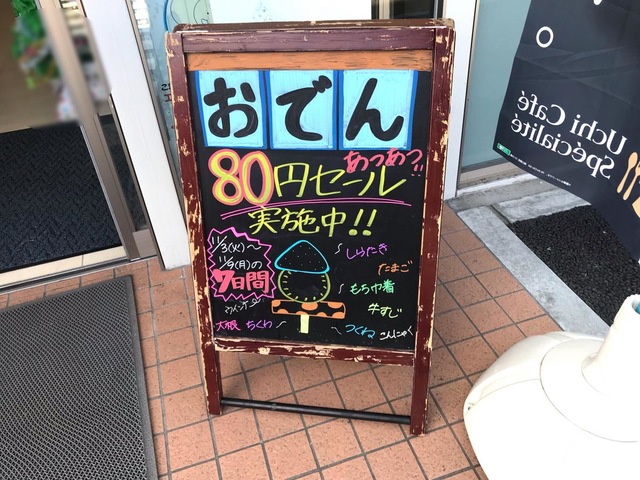 おでん
あつあつ!!
80円セール
実施中!!
11/3(火)~
11/9(月)の
7日間
しらたき
たまご
もち巾着
牛すじ
ウインナー
大根 ちくわ
つくね こんにゃく
Uchi Café
Spécialité